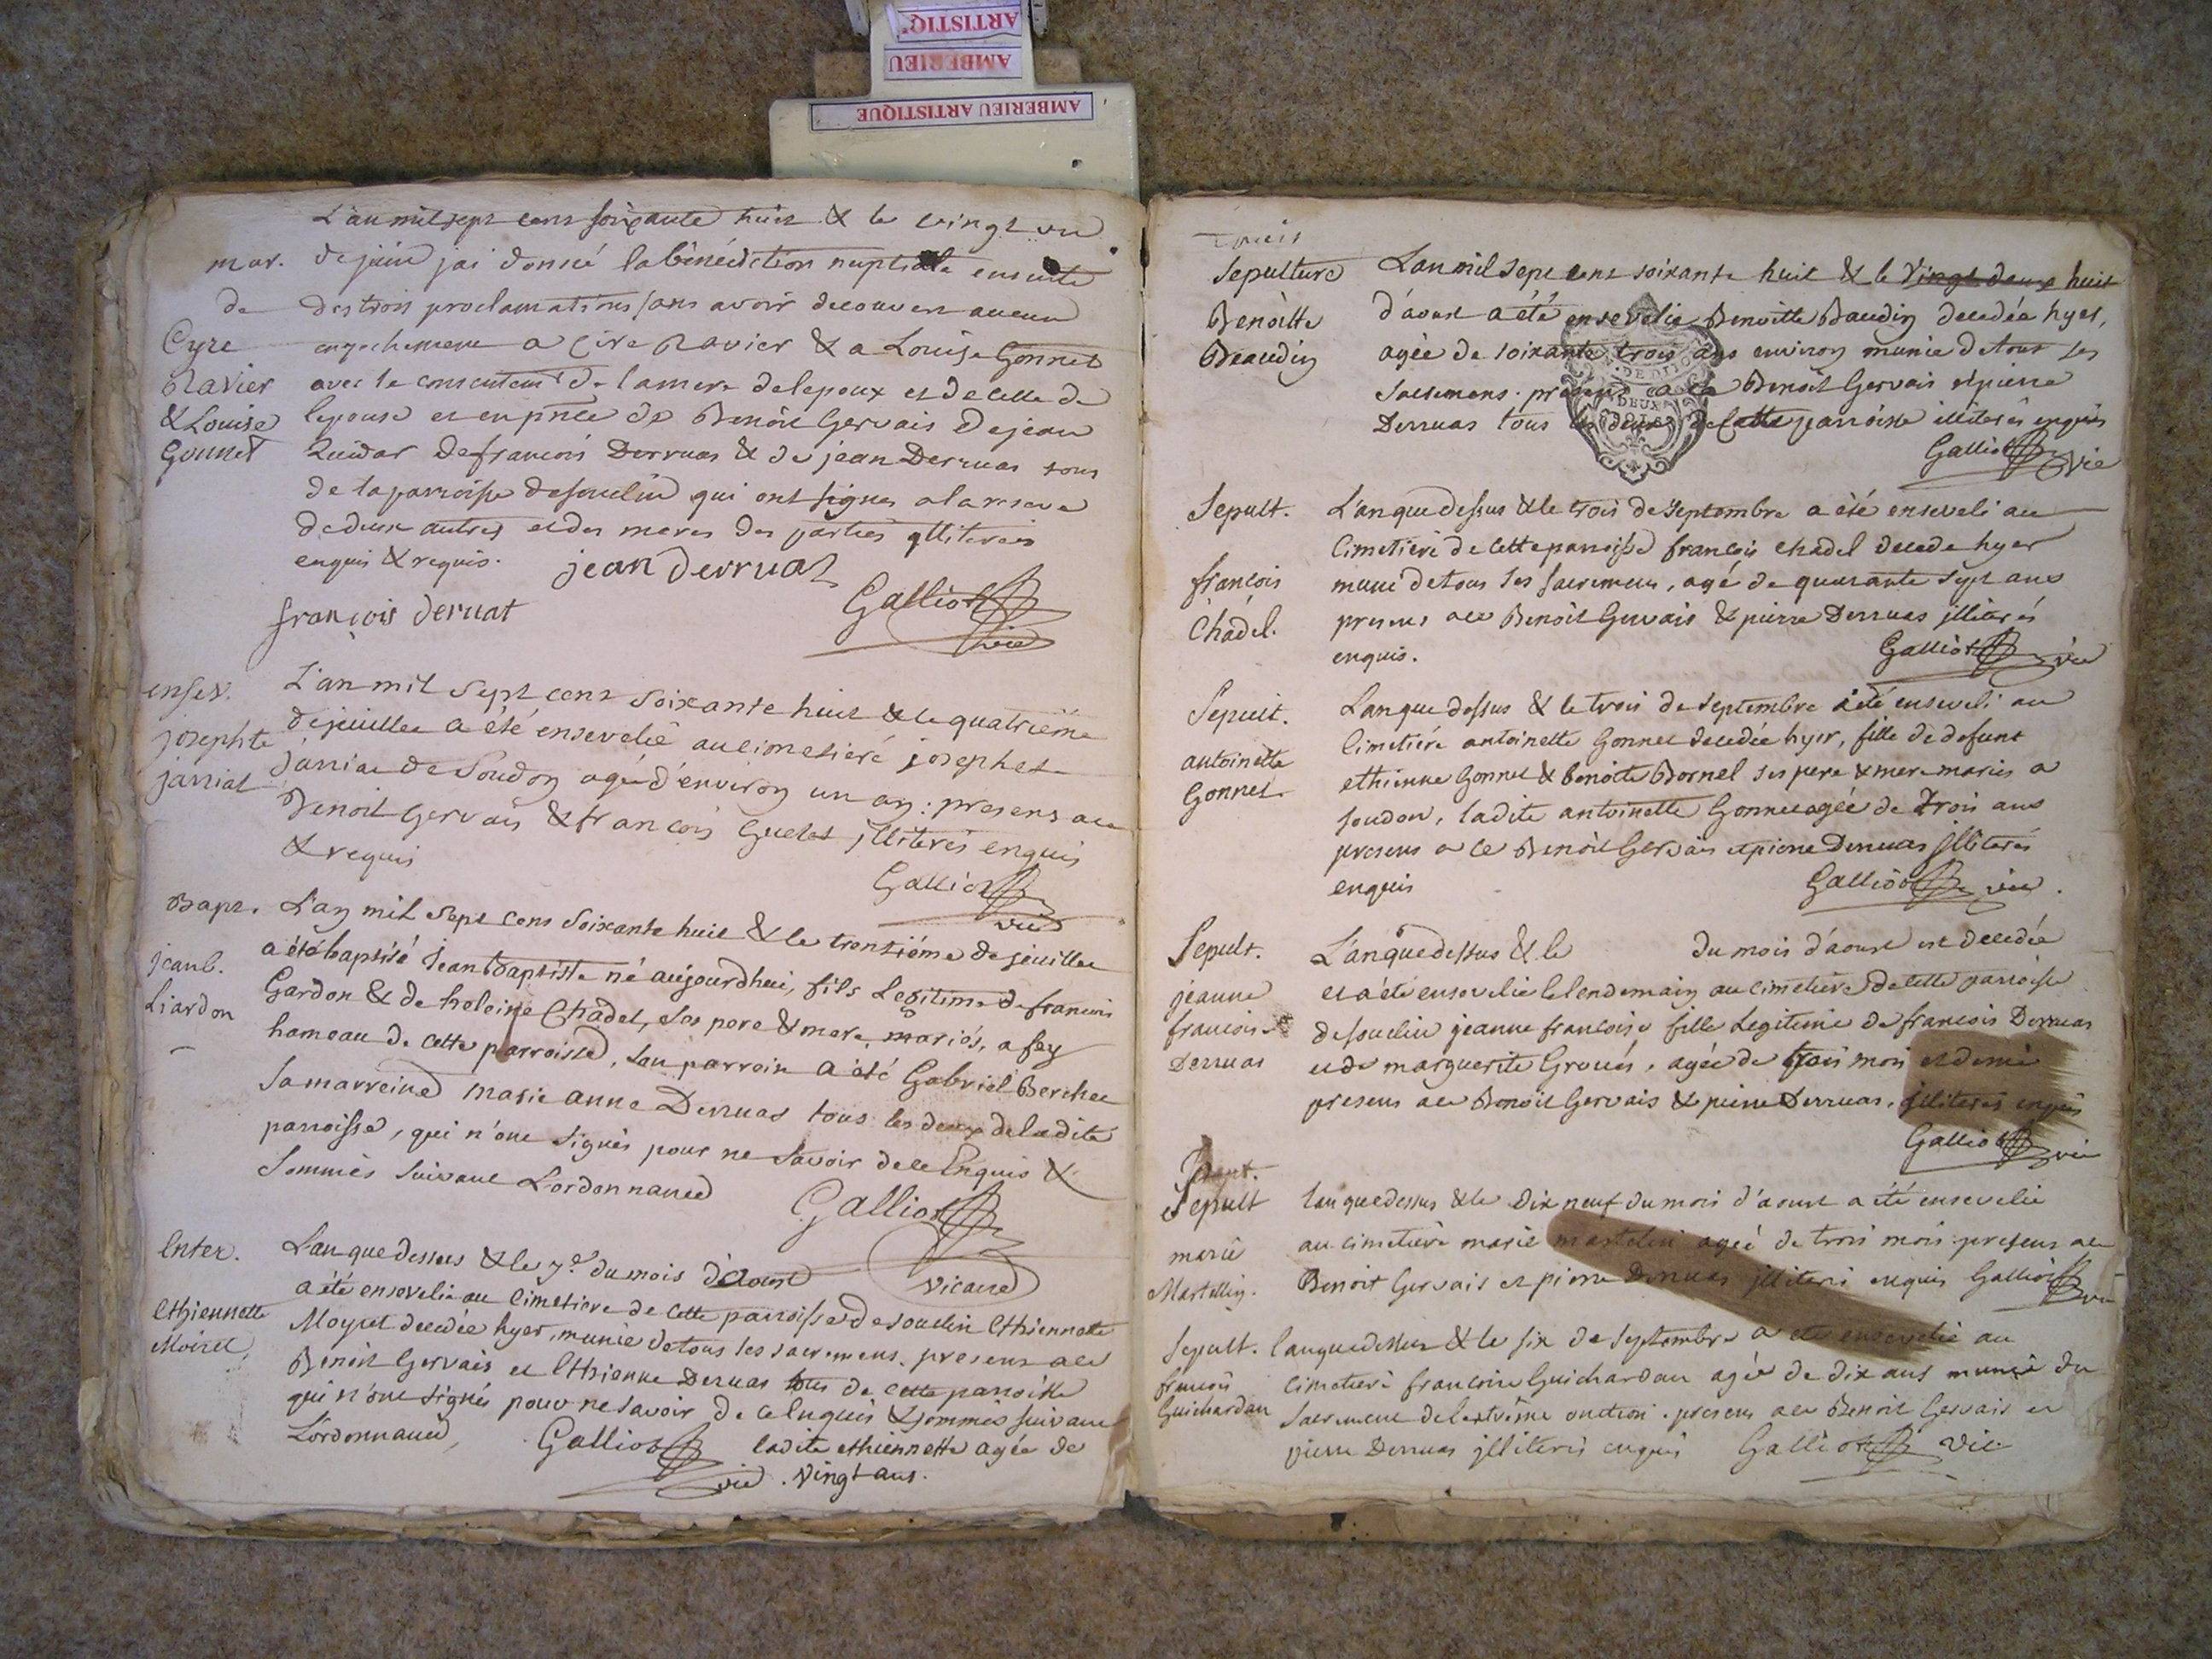 ARTISTIQ
AMBERIEU
AMBERIEU ARTISTIQUE
L'an mil sept cens soixante huit & le vingt un
mar. de juin jai donné la bénédiction nuptiale ensuite
de des trois proclamations sans avoir decouvert aucun
Cyre empechement a Cire Ravier & a Louise Gonnet
Ravier avec le consentem.t de la mere de lepoux et de celle de
& Louise lepouse et en pnce de Benoit Gervais de jean
Gonnet de francois Derruas & de jean Derruas tous
de la parroisse de souclin qui ont signes a la reserve
de deux autres et des meres des parties illiterées
enquis & requis. jean derruas
françois deruat Galliot vic
ensev. L'an mil sept cens soixante huit & le quatrième
josephte de juillet a été ensevelie au cimetiere josephte
janiat janiat de Soudon agé d'environ un an : presens a ce
Benoit Gervais & francois Guelet illiterés enquis
& requis
Galliot vic
Bapt. L'an mil sept cens soixante huit & le trentième de juillet
jean b. a été baptisé jean baptiste né aujourdhui, fils Legitime de francois
Liardon Gardon & de heleine Chadel, ses pere & mere, mariés, a fey
hameau de cette parroisse, son parrein a été Gabriel Berchet
sa marreine marie anne Derruas tous les deux de ladite
parroisse, qui n'ont signés pour ne savoir de ce Enquis &
sommés suivant L'ordonnance
Galliot vicaire
Enter. L'an que dessus & le 7e du mois d'aoust
a été ensevelie au cimetiere de cette parroisse de souclin Ethiennette
Ethiennette Moyret decedée hyer, munie de tous les sacremens. presens a ce
Moiret Benoit Gervais et Ethienne Deruas tous de cette parroisse
qui n'ont signés pour ne savoir de ce Enquis & sommés suivant
L'ordonnance, Galliot ladite ethiennette agée de
vic. vingt ans.
trois
Sepulture L'an mil sept cens soixante huit & le vingt deux huit
Benoitte d'aoust a été ensevelie Benoitte Baudin decedée hyer,
Beaudin agée de soixante trois ans environ munie de tous ses
sacremens. presens a ce Benoit Gervais et pierre
Derruas tous les deux de cette parroisse illiterés enquis
Galliot vic
Sepult. L'an que dessus & le trois de Septembre a été enseveli au
cimetiere de cette parroisse françois chadel decede hyer
françois muni de tous ses sacremens, agé de quarante sept ans
Chadel. presens a ce Benoit Gervais & pierre Derruas illiterés
enquis. Galliot vic
Sepult. L'an que dessus & le trois de Septembre a été enseveli au
cimetiére antoinette Gonnet decedée hyer, fille de defunt
antoinette ethienne Gonnet & benoite Bornel ses pere & mere mariés a
Gonnet. soudon, ladite antoinette Gonnet agée de trois ans
presens a ce Benoit Gervais et pierre Derruas illiterés
enquis Galliot vic.
Sepult. L'an que dessus & le du mois d'aoust est decedée
et a été ensevelie le lendemain au cimetiere de cette parroisse
jeanne
francoise de souclin jeanne francoise fille Legitime de francois Derruas
Derruas et de marguerite Groués, agée de trois mois et demi
presens a ce Benoit Gervais & pierre Derruas, illiterés enquis
Galliot vic
Sepult
Sepult L'an que dessus & le Dix neuf du mois d'aoust a été ensevelie
marie au cimetiére marie martelin agée de trois mois presens a ce
Martellin. Benoit Gervais et pierre Derruas illiterés enquis Galliot vic
Sepult. L'an que dessus & le six de Septembre a été ensevelie au
francois cimetiere francoise Guichardan agée de dix ans munie du
Guichardan Sacrement de l'extrême onction. presens a ce Benoit Gervais et
pierre Derruas illiterés enquis Galliot vic